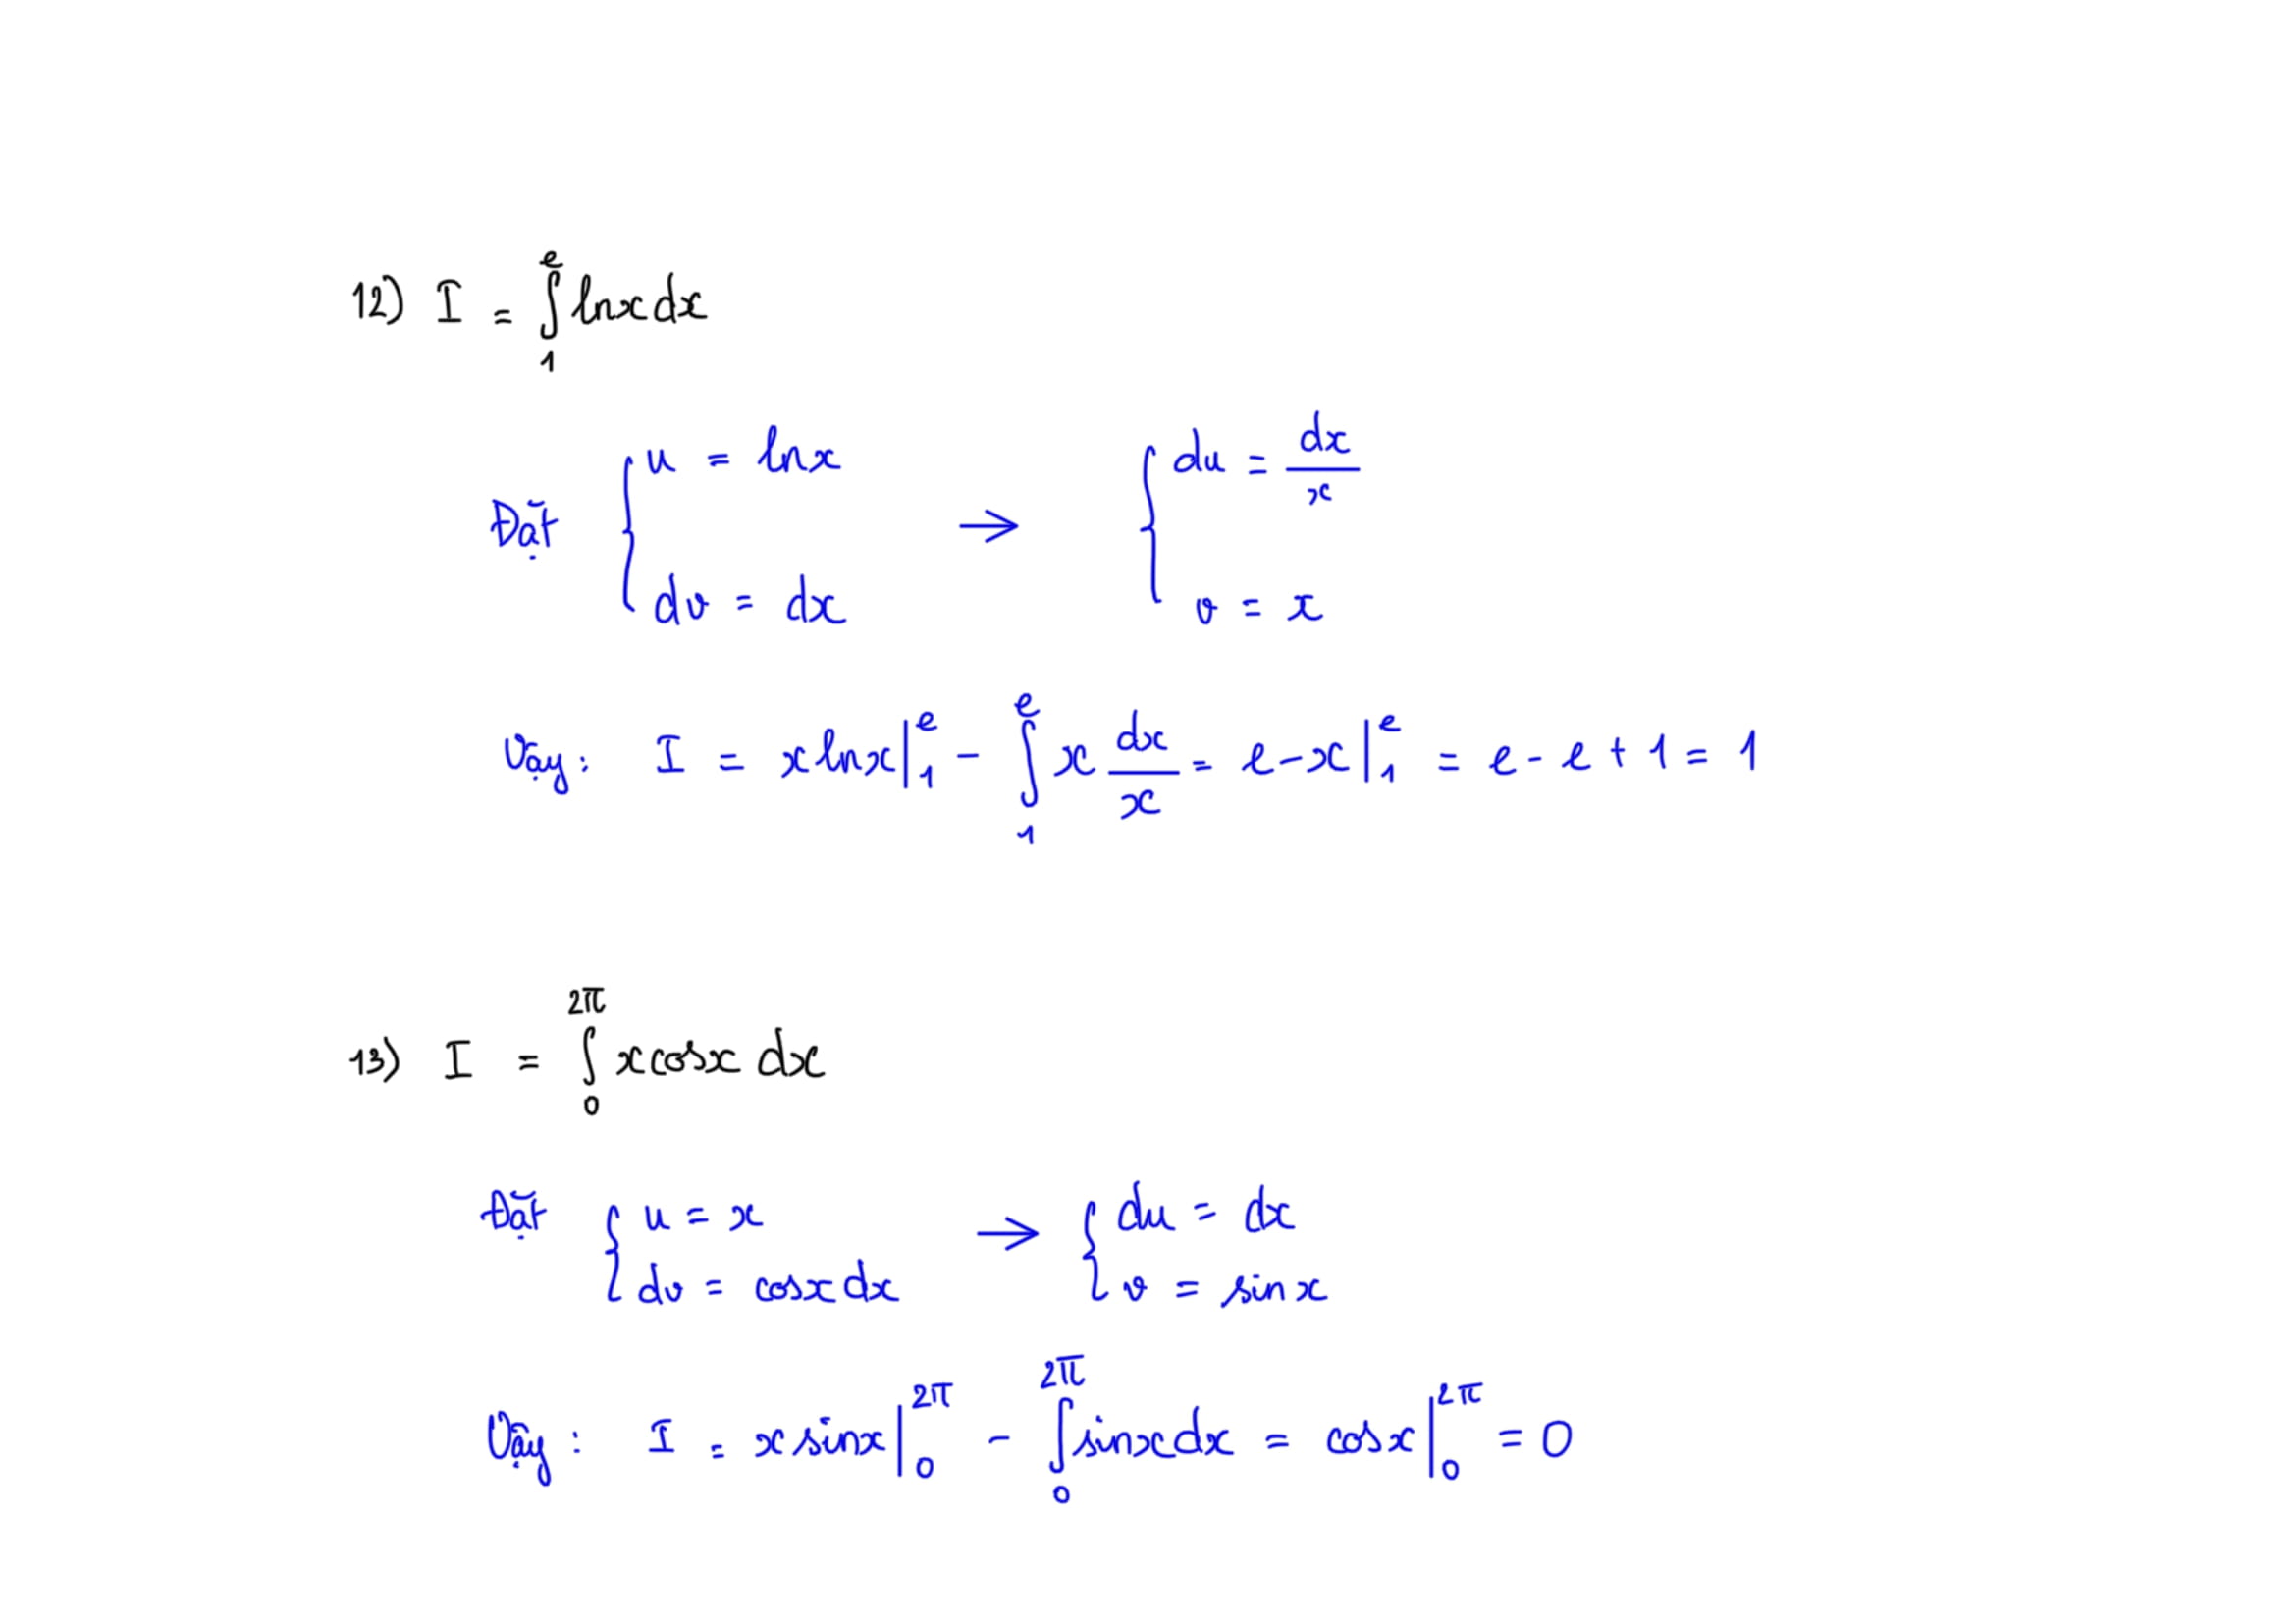 12) I = ∫₁ᵉ lnx dx
Đặt { u = lnx ; dv = dx → { du = dx/x ; v = x
Vậy : I = x lnx |₁ᵉ - ∫₁ᵉ x dx/x = e - x |₁ᵉ = e - e + 1 = 1
13) I = ∫₀^2π x cosx dx
Đặt { u = x ; dv = cosx dx → { du = dx ; v = sin x
Vậy : I = x sinx |₀^2π - ∫₀^2π sinx dx = cos x |₀^2π = 0